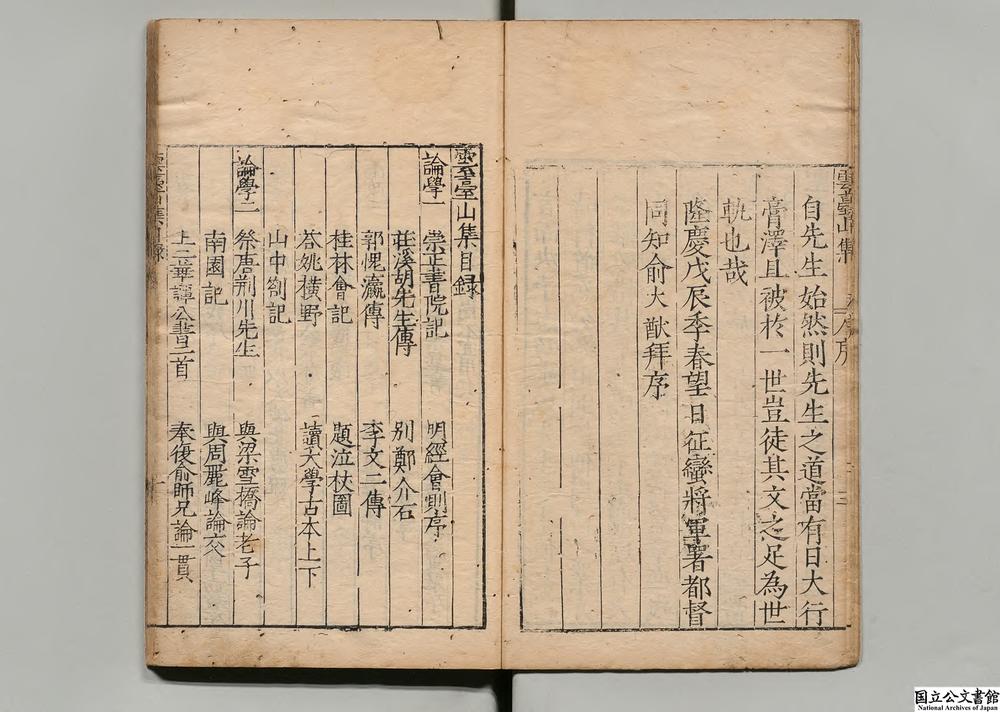 自先生始然則先生之道當有日大行
膏澤且被於一世豈徒其文之足為世
軌也哉
隆慶戊辰季春望日征蠻將軍署都督
同知俞大猷拜序
雲臺山集目録
論學一
崇正書院記 明經會則序
莊溪胡先生傳 別鄭介石
郭愧瀛傳 李文二傳
桂林會記 題泣杖圖
荅姚橫野 讀大學古本上下
山中劄記
論學二
祭唐荊川先生 與梁雪橋論老子
南園記 與周麗峰論交
上二華譚公書二首 奉復俞師兄論一貫
国立公文書館
National Archives of Japan